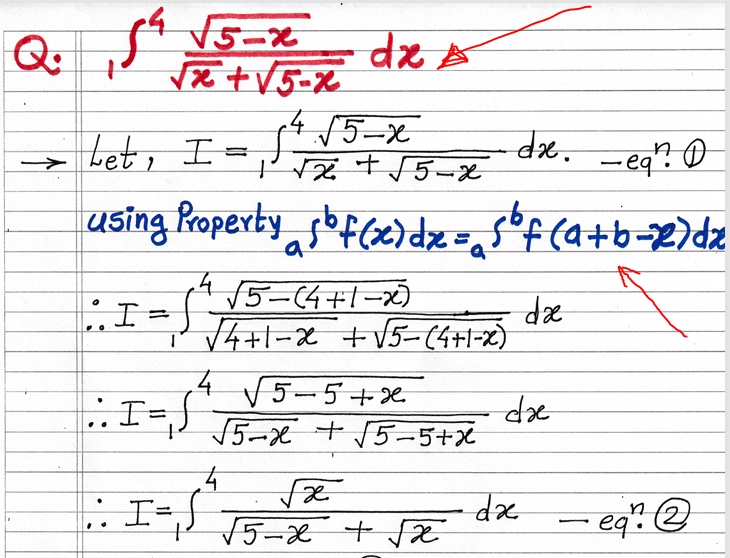 Q: ₁∫⁴ √(5-x) / (√x + √(5-x)) dx
→ Let, I = ₁∫⁴ √(5-x) / (√x + √(5-x)) dx. — eqⁿ. ①
using Property ₐ∫ᵇ f(x) dx = ₐ∫ᵇ f(a+b-x) dx
∴ I = ₁∫⁴ √(5-(4+1-x)) / (√(4+1-x) + √(5-(4+1-x))) dx
∴ I = ₁∫⁴ √(5-5+x) / (√(5-x) + √(5-5+x)) dx
∴ I = ₁∫⁴ √x / (√(5-x) + √x) dx — eqⁿ. ②